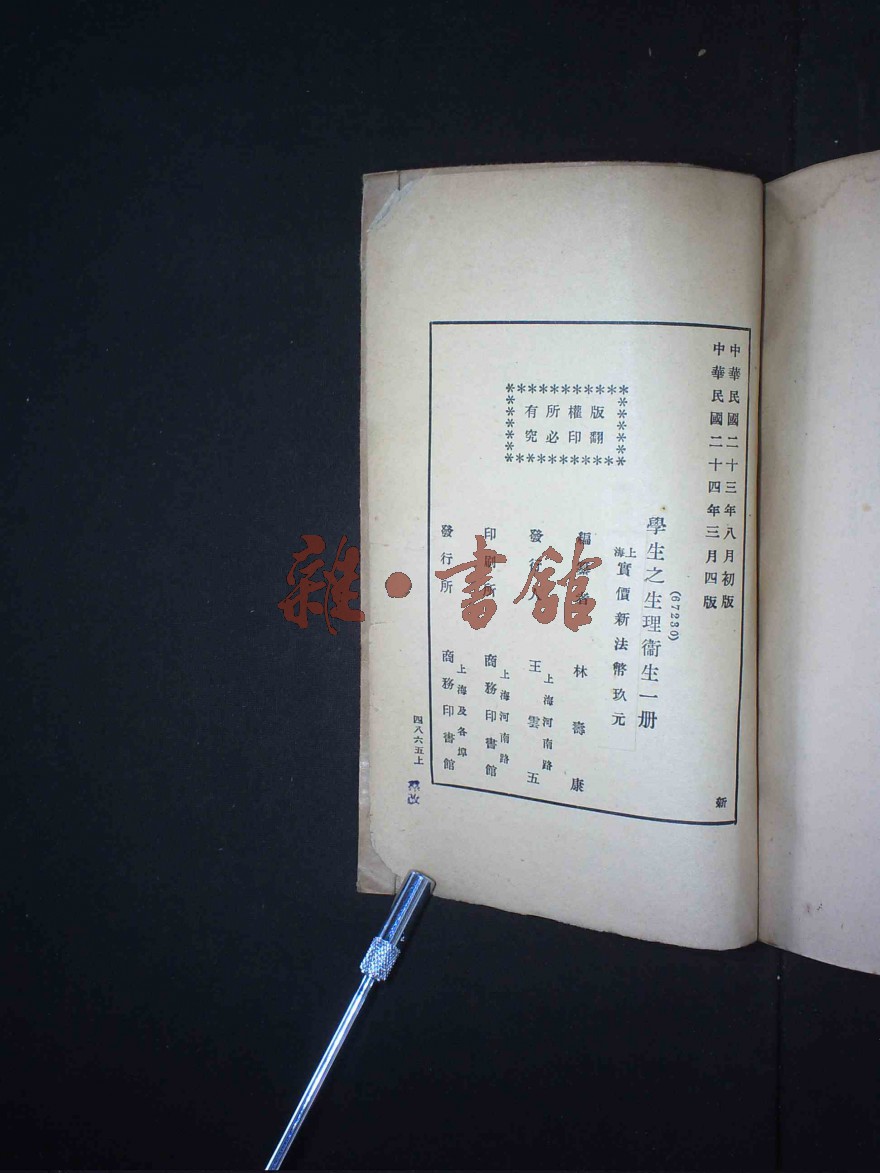 中華民國二十三年八月初版
中華民國二十四年三月四版
新
(67230)
學生之生理衞生一册
上海實價新法幣玖元
版權所有
翻印必究
編纂者 林壽康
發行人 王雲五
上海河南路
印刷所 商務印書館
上海河南路
發行所 商務印書館
上海及各埠
四八六五上
雜·書館